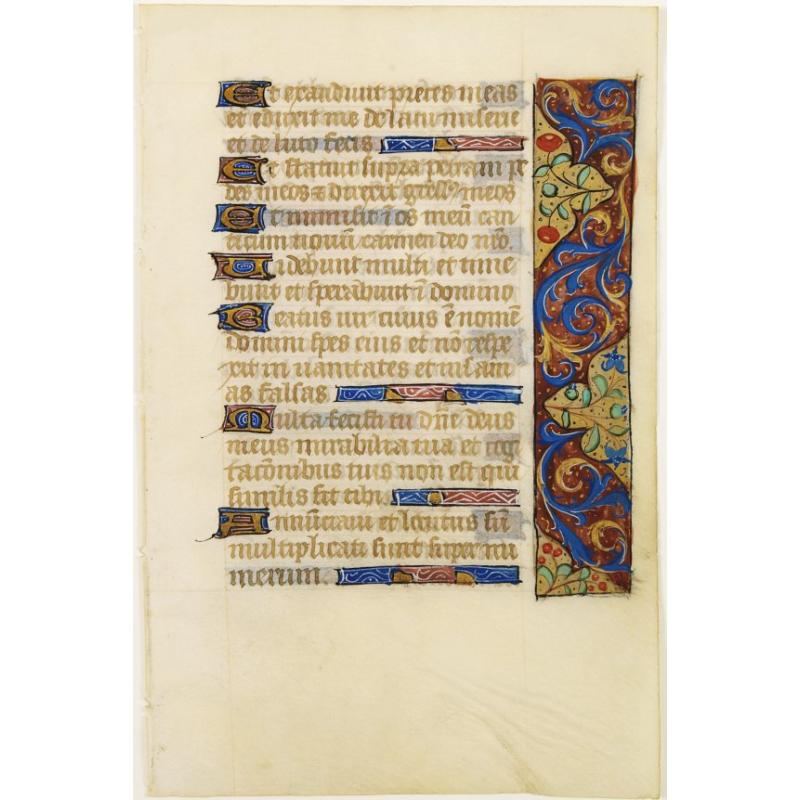 Et exaudivit preces meas
et eduxit me de lacu miserie
et de luto fecis
Et statuit supra petram pe
des meos & direxit gressꝰ meos
Et immisit ĩ os meũ can
ticum novũ carmen deo nr̃o.
Videbunt multi et time
bunt et sperabunt ĩ domino
Beatus vir cuius ẽ nomẽ
domini spes eius et nõ respe
xit in vanitates et insani
as falsas
Multa fecisti tu dñe deus
meus mirabilia tua et cogi
tacõnibus tuis non est qui
similis sit tibi
Annũciavi et locutus sũ
multiplicati sunt super nu
merum.